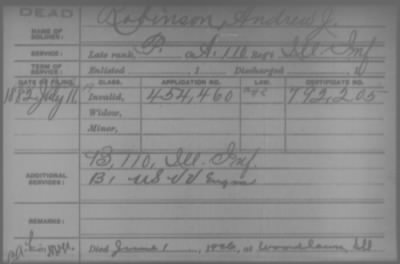 DEAD
NAME OF SOLDIER: Robinson, Andrew J.
SERVICE: Late rank, P. Co. A, 110 Reg't Ill. Inf.
TERM OF SERVICE: Enlisted , 1 Discharged , 1
DATE OF FILING. CLASS. APPLICATION NO. LAW. CERTIFICATE NO.
1882, July 11 Invalid, 454,460 792,205
Widow,
Minor,
ADDITIONAL SERVICES: B, 110, Ill. Inf.
B, 1 U S V V Engrs
REMARKS:
Died June 1, at Woodlawn Ill